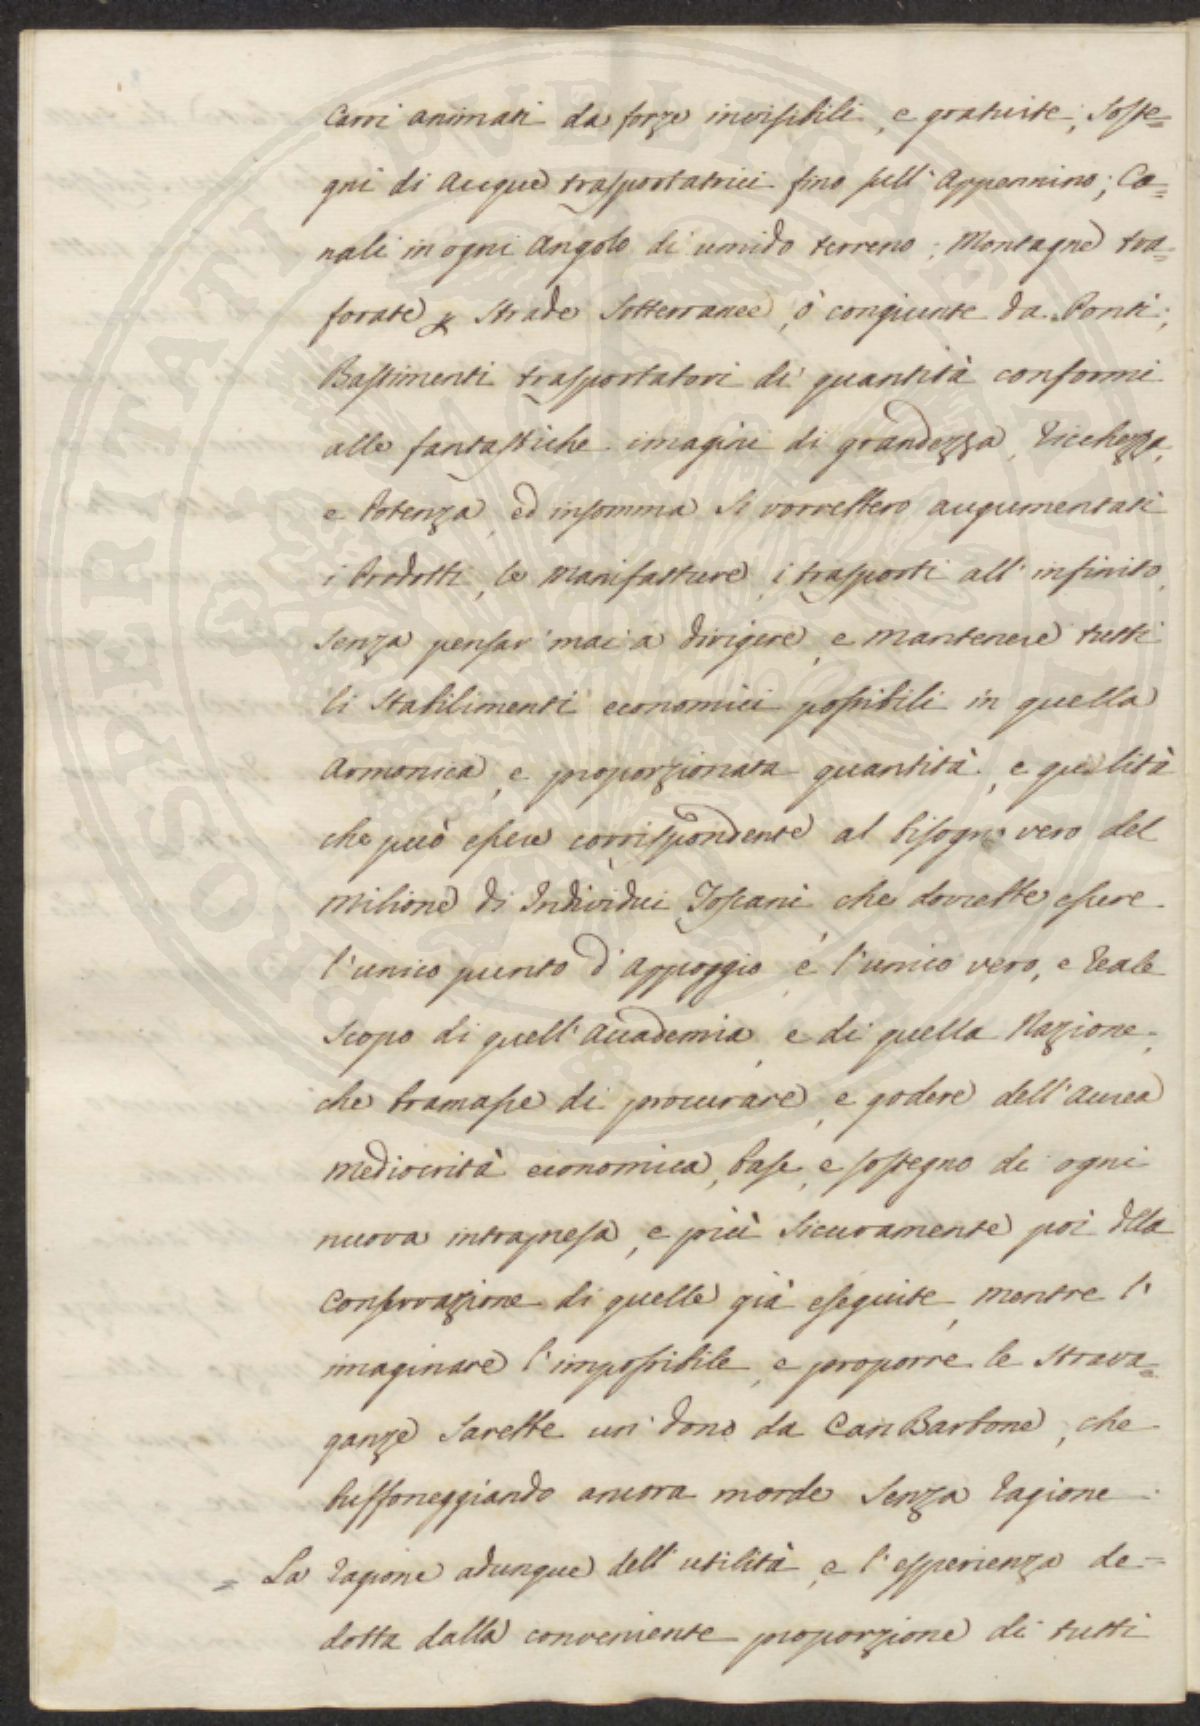 Carri animati da forze invisibili, e gratuite; Soste=
gni di Acque trasportatrici fino sull' Appennino; Ca=
nali in ogni Angolo di umido terreno; Montagne tra=
forate, Strade Sotterranee, ò congiunte da Ponti;
Bastimenti trasportatori di quantità conformi
alle fantastiche imagini di grandezza, Ricchezza,
e Potenza, ed insomma si vorrebbero augumentati
i Prodotti, le Manifatture, i trasporti all' infinito,
senza pensar mai a dirigere, e mantenere tutti
li Stabilimenti economici possibili in quella
Armonica, e proporzionata quantità, e qualità
che può essere corrispondente al bisogno vero del
Milione di Individui Toscani, che dovrebbe essere
l'unico punto d'appoggio, e l'unico vero, e Reale
Scopo di quell' Accademia, e di quella Nazione,
che bramasse di procurare, e godere dell' Aurea
mediocrità economica, base, e sostegno di ogni
nuova intrapresa, e più sicuramente poi della
Conservazione di quelle già eseguite, mentre l'
imaginare l'impossibile, e proporre le strava=
ganze sarebbe un dono da Can Barbone, che
buffoneggiando ancora morde senza ragione.
= La ragione adunque dell' utilità, e l'esperienza de=
dotta dalla conveniente proporzione di tutti
PROSPERITATI PVBLICAE AVGENDAE